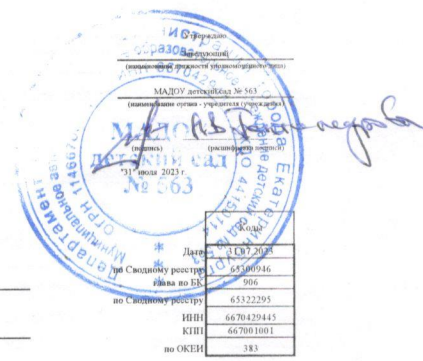 Утверждаю
Заведующий
(наименование должности уполномоченного лица)
МАДОУ детский сад № 563
(наименование органа - учредителя (учреждения)
(подпись) (расшифровка подписи)
"31" июля 2023 г.
МАДОУ
детский сад
№ 563
Коды
Дата 31.07.2023
по Сводному реестру 65300946
глава по БК 906
по Сводному реестру 65322295
ИНН 6670429445
КПП 667001001
по ОКЕИ 383